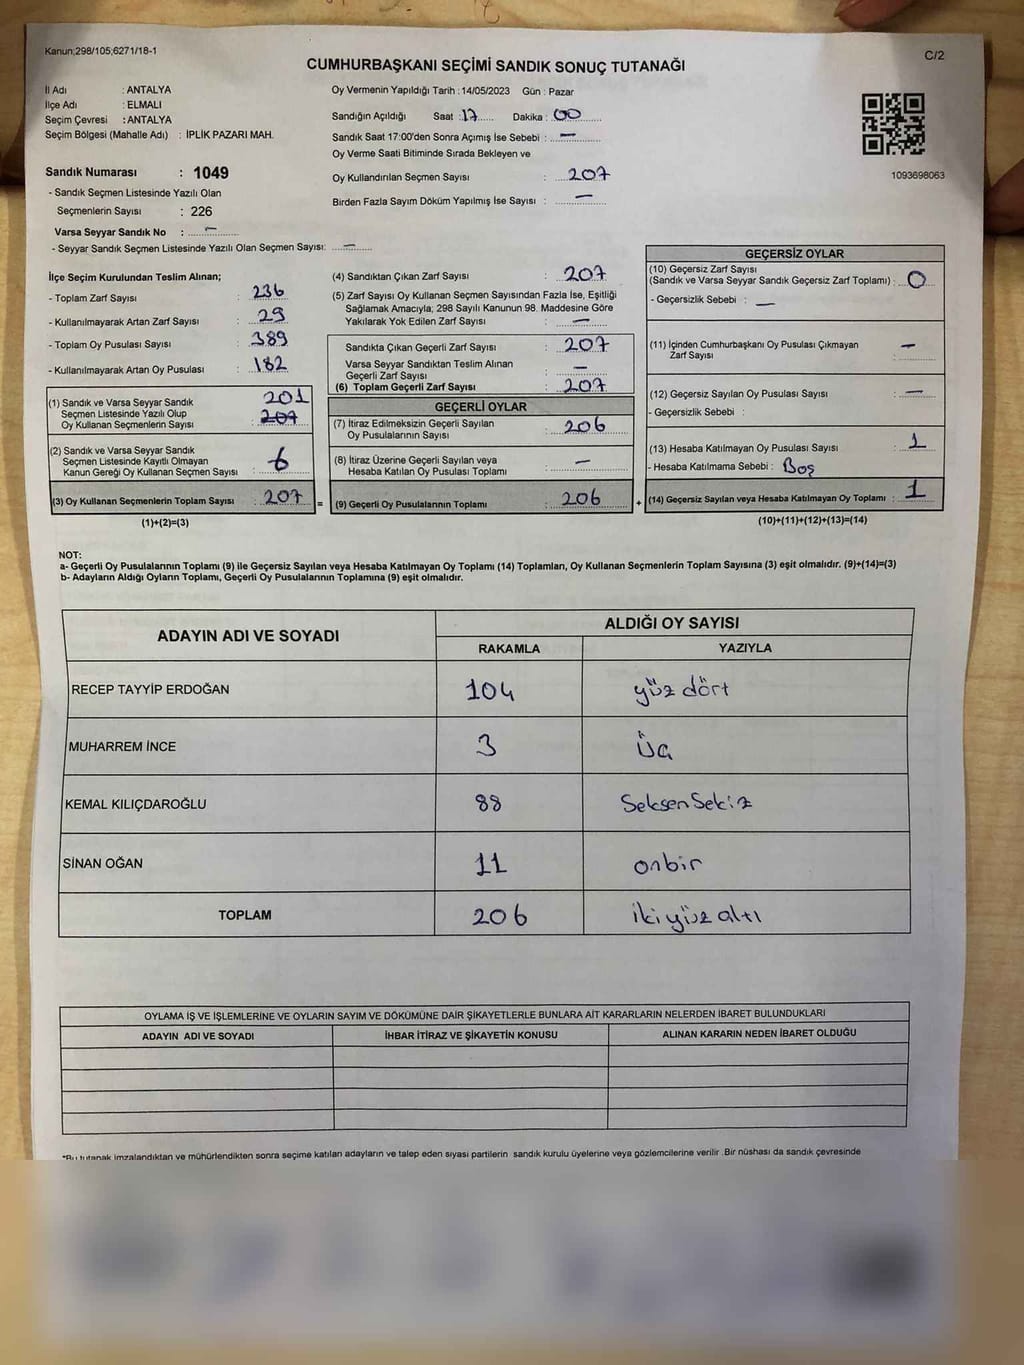 Kanun;298/105;6271/18-1
C/2
CUMHURBAŞKANI SEÇİMİ SANDIK SONUÇ TUTANAĞI
İl Adı : ANTALYA
İlçe Adı : ELMALI
Seçim Çevresi : ANTALYA
Seçim Bölgesi (Mahalle Adı) : İPLİK PAZARI MAH.
Sandık Numarası : 1049
- Sandık Seçmen Listesinde Yazılı Olan
Seçmenlerin Sayısı : 226
Varsa Seyyar Sandık No : —
- Seyyar Sandık Seçmen Listesinde Yazılı Olan Seçmen Sayısı: —
Oy Vermenin Yapıldığı Tarih : 14/05/2023 Gün : Pazar
Sandığın Açıldığı Saat : 17 Dakika : 00
Sandık Saat 17:00'den Sonra Açımış İse Sebebi : —
Oy Verme Saati Bitiminde Sırada Bekleyen ve
Oy Kullandırılan Seçmen Sayısı : 207
Birden Fazla Sayım Döküm Yapılmış İse Sayısı : —
1093698063
İlçe Seçim Kurulundan Teslim Alınan;
- Toplam Zarf Sayısı : 236
- Kullanılmayarak Artan Zarf Sayısı : 29
- Toplam Oy Pusulası Sayısı : 389
- Kullanılmayarak Artan Oy Pusulası : 182
(1) Sandık ve Varsa Seyyar Sandık 201
Seçmen Listesinde Yazılı Olup
Oy Kullanan Seçmenlerin Sayısı : 207
(2) Sandık ve Varsa Seyyar Sandık
Seçmen Listesinde Kayıtlı Olmayan
Kanun Gereği Oy Kullanan Seçmen Sayısı : 6
(3) Oy Kullanan Seçmenlerin Toplam Sayısı : 207 =
(1)+(2)=(3)
(4) Sandıktan Çıkan Zarf Sayısı : 207
(5) Zarf Sayısı Oy Kullanan Seçmen Sayısından Fazla İse, Eşitliği
Sağlamak Amacıyla; 298 Sayılı Kanunun 98. Maddesine Göre
Yakılarak Yok Edilen Zarf Sayısı : —
Sandıkta Çıkan Geçerli Zarf Sayısı : 207
Varsa Seyyar Sandıktan Teslim Alınan
Geçerli Zarf Sayısı : —
(6) Toplam Geçerli Zarf Sayısı : 207
GEÇERLİ OYLAR
(7) İtiraz Edilmeksizin Geçerli Sayılan
Oy Pusulalarının Sayısı : 206
(8) İtiraz Üzerine Geçerli Sayılan veya
Hesaba Katılan Oy Pusulası Toplamı : —
(9) Geçerli Oy Pusulalarının Toplamı : 206 +
GEÇERSİZ OYLAR
(10) Geçersiz Zarf Sayısı
(Sandık ve Varsa Seyyar Sandık Geçersiz Zarf Toplamı) : 0
- Geçersizlik Sebebi : —
(11) İçinden Cumhurbaşkanı Oy Pusulası Çıkmayan
Zarf Sayısı : —
(12) Geçersiz Sayılan Oy Pusulası Sayısı : —
- Geçersizlik Sebebi :
(13) Hesaba Katılmayan Oy Pusulası Sayısı : 1
- Hesaba Katılmama Sebebi : Boş
(14) Geçersiz Sayılan veya Hesaba Katılmayan Oy Toplamı : 1
(10)+(11)+(12)+(13)=(14)
NOT:
a- Geçerli Oy Pusulalarının Toplamı (9) ile Geçersiz Sayılan veya Hesaba Katılmayan Oy Toplamı (14) Toplamları, Oy Kullanan Seçmenlerin Toplam Sayısına (3) eşit olmalıdır. (9)+(14)=(3)
b- Adayların Aldığı Oyların Toplamı, Geçerli Oy Pusulalarının Toplamına (9) eşit olmalıdır.
ADAYIN ADI VE SOYADI ALDIĞI OY SAYISI
RAKAMLA YAZIYLA
RECEP TAYYİP ERDOĞAN 104 yüz dört
MUHARREM İNCE 3 üç
KEMAL KILIÇDAROĞLU 88 Seksen Sekiz
SİNAN OĞAN 11 onbir
TOPLAM 206 iki yüz altı
OYLAMA İŞ VE İŞLEMLERİNE VE OYLARIN SAYIM VE DÖKÜMÜNE DAİR ŞİKAYETLERLE BUNLARA AİT KARARLARIN NELERDEN İBARET BULUNDUKLARI
ADAYIN ADI VE SOYADI İHBAR İTİRAZ VE ŞİKAYETİN KONUSU ALINAN KARARIN NEDEN İBARET OLDUĞU
*Bu tutanak imzalandıktan ve mühürlendikten sonra seçime katılan adayların ve talep eden siyasi partilerin sandık kurulu üyelerine veya gözlemcilerine verilir .Bir nüshası da sandık çevresinde